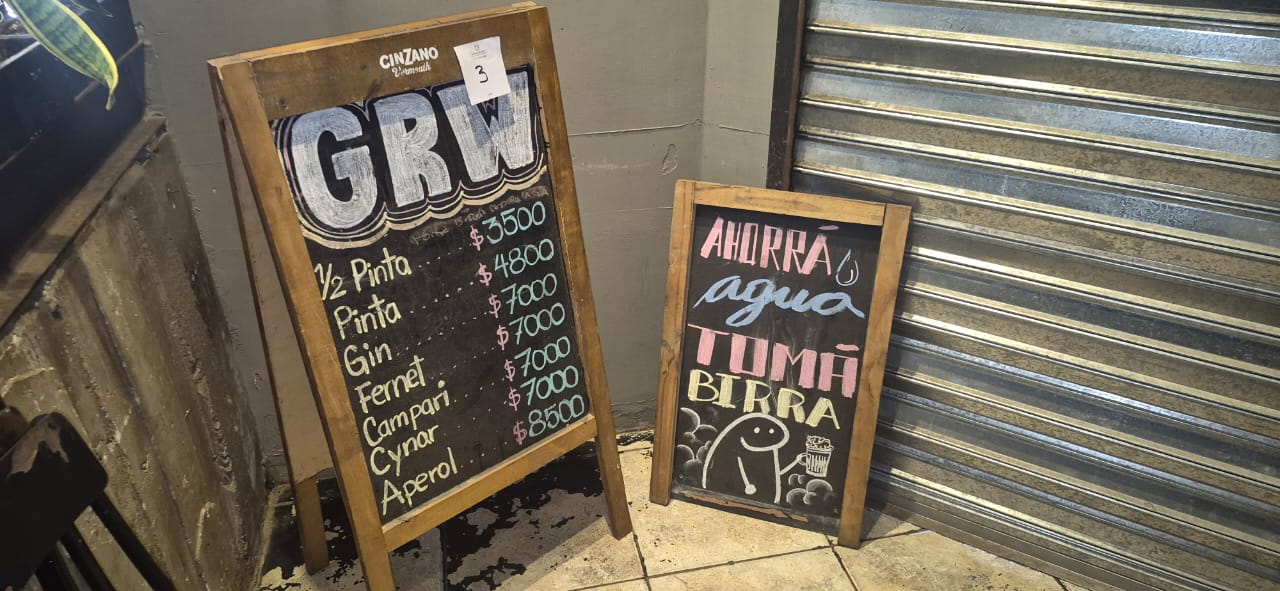 CINZANO
Vermouth
3
GRW
½ Pinta ........ $3500
Pinta ........ $4800
Gin ........ $7000
Fernet ........ $7000
Campari ...... $7000
Cynar ...... $7000
Aperol ...... $8500
AHORRÁ
agua
TOMÁ
BIRRA